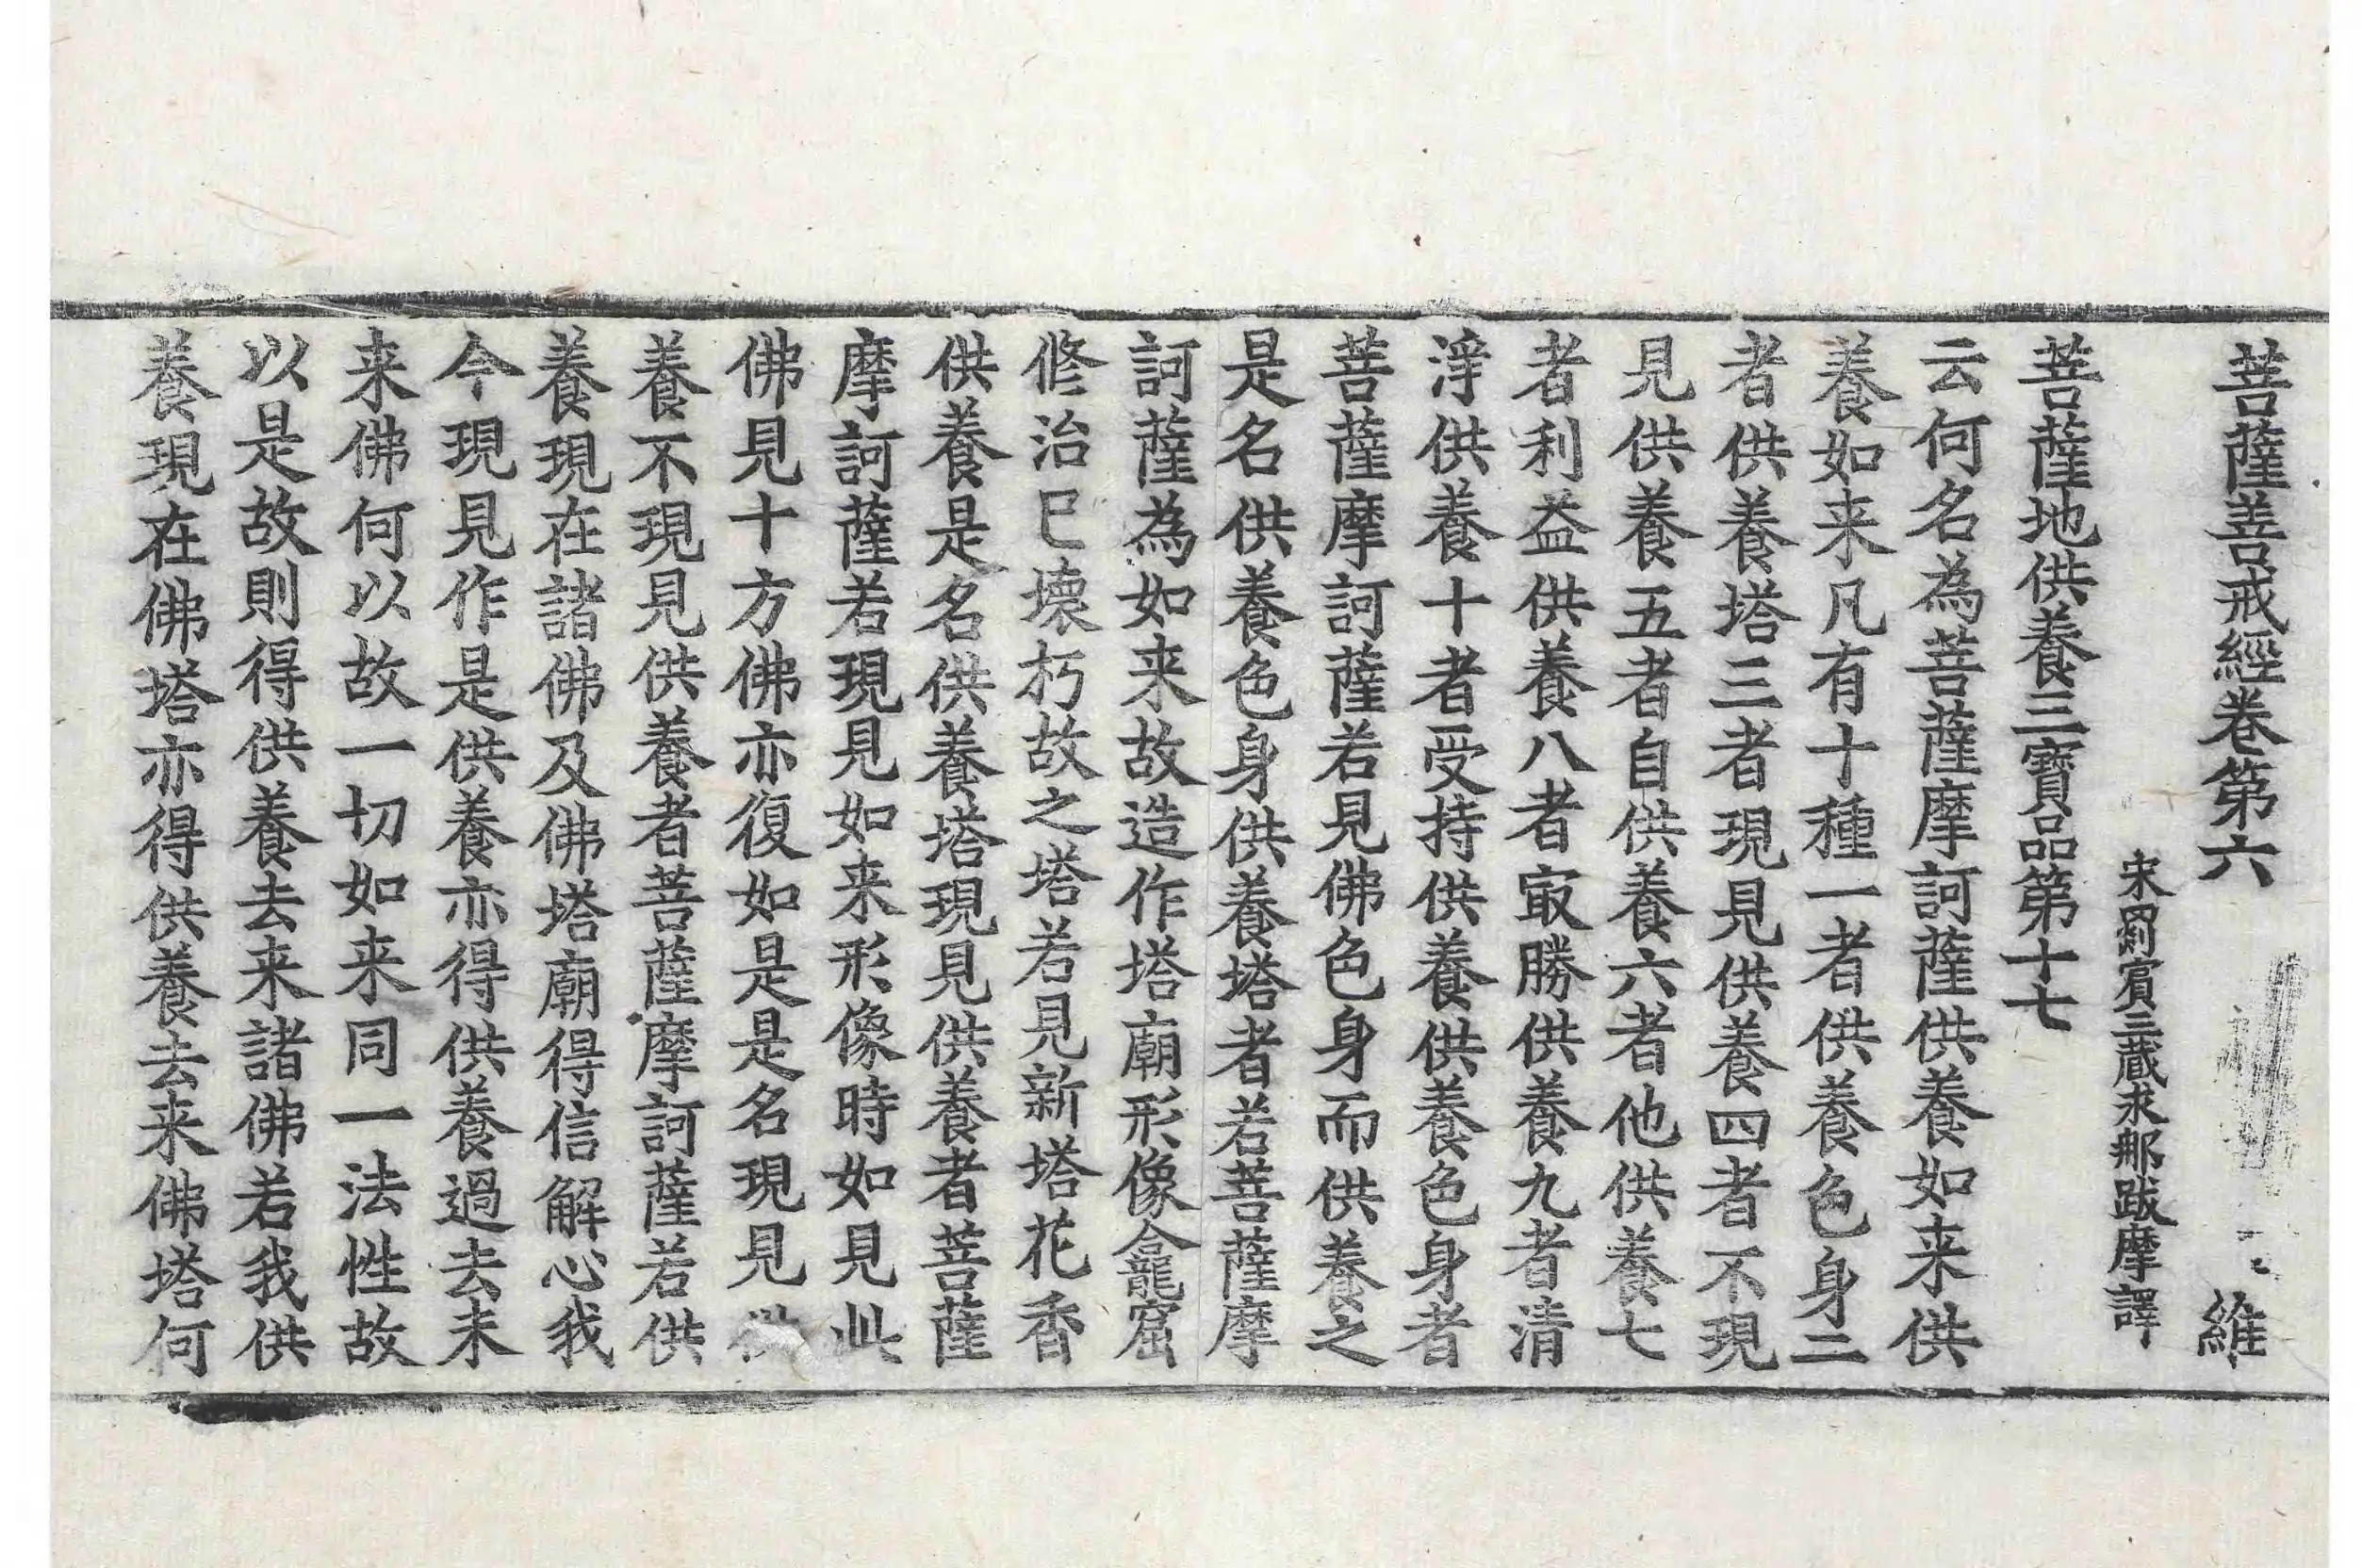 菩薩善戒經卷第六 維
宋罽賓三藏求那跋摩譯
菩薩地供養三寶品第十七
云何名為菩薩摩訶薩供養如来供
養如来凡有十種一者供養色身二
者供養塔三者現見供養四者不現
見供養五者自供養六者他供養七
者利益供養八者冣勝供養九者清
淨供養十者受持供養供養色身者
菩薩摩訶薩若見佛色身而供養之
是名供養色身供養塔者若菩薩摩
訶薩為如来故造作塔廟形像龕窟
修治已壞朽故之塔若見新塔花香
供養是名供養塔現見供養者菩薩
摩訶薩若現見如来形像時如見此
佛見十方佛亦復如是是名現見供
養不現見供養者菩薩摩訶薩若供
養現在諸佛及佛塔廟得信解心我
今現見作是供養亦得供養過去未
来佛何以故一切如来同一法性故
以是故則得供養去来諸佛若我供
養現在佛塔亦得供養去来佛塔何